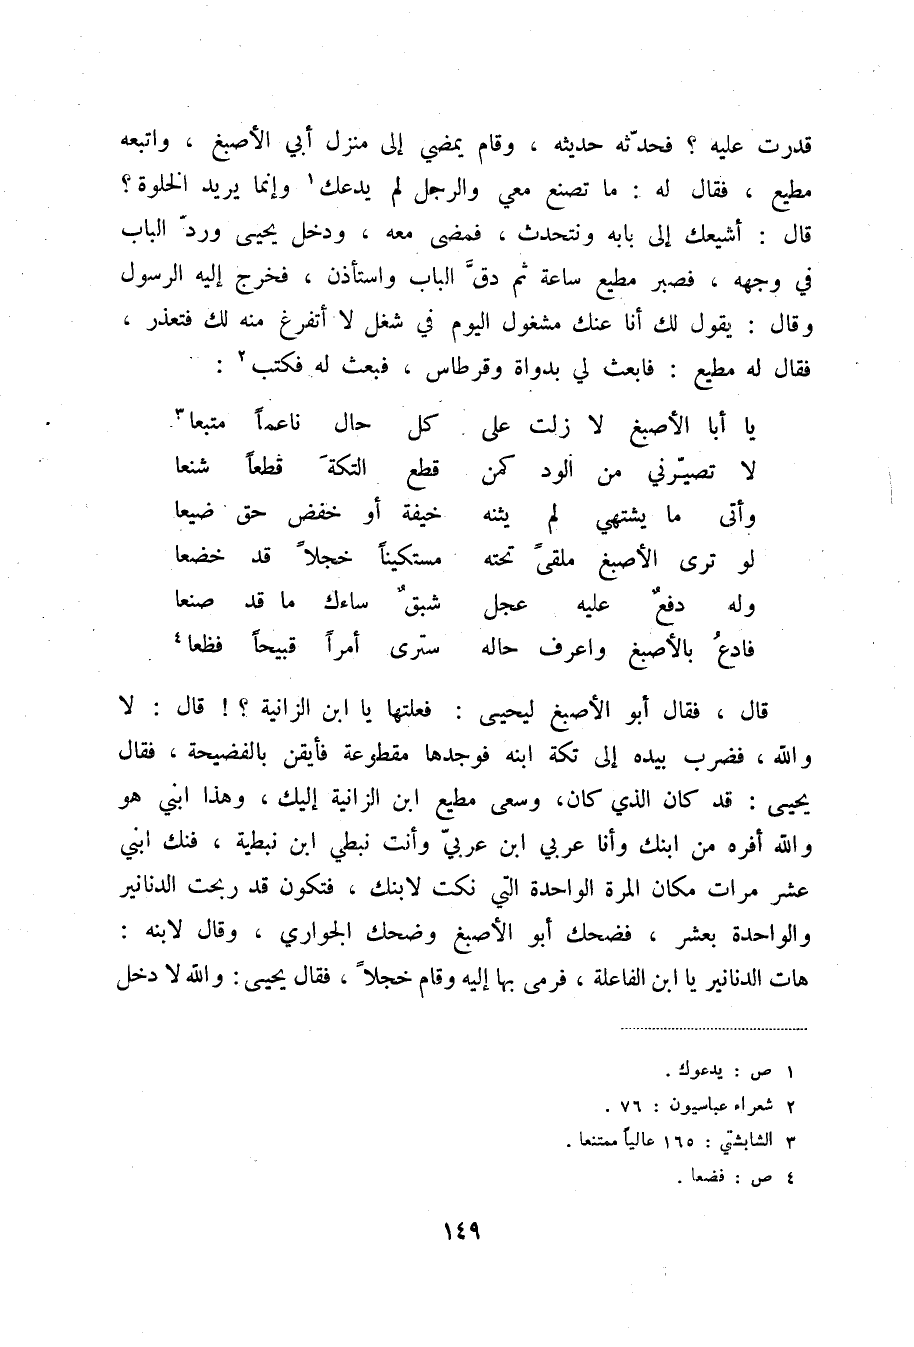 قدرت عليه ؟ فحدّثه حديثه ، وقام يمضي إلى منزل أبي الأصبغ ، واتبعه
مطيع ، فقال له : ما تصنع معي والرجل لم يدعك١ وإنما يريد الخلوة ؟
قال : أشيعك إلى بابه ونتحدث ، فمضى معه ، ودخل يحيى وردّ الباب
في وجهه ، فصبر مطيع ساعة ثم دقَّ الباب واستأذن ، فخرج إليه الرسول
وقال : يقول لك أنا عنك مشغول اليوم في شغل لا أتفرغ منه لك فتعذر ،
فقال له مطيع : فابعث لي بدواة وقرطاس ، فبعث له فكتب٢ :
يا أبا الأصبغ لا زلت على كل حال ناعماً متبعا٣
لا تصيّرني من الود كمن قطع التكةَ قطعاً شنعا
وأتى ما يشتهي لم يثنه خيفة أو خفض حق ضيعا
لو ترى الأصبغ ملقىً تحته مستكيناً خجلاً قد خضعا
وله دفعٌ عليه عجل شبقٌ ساءك ما قد صنعا
فادعُ بالأصبغ واعرف حاله سترى أمراً قبيحاً فظعا٤
قال ، فقال أبو الأصبغ ليحيى : فعلتها يا ابن الزانية ؟ ! قال : لا
والله ، فضرب بيده إلى تكة ابنه فوجدها مقطوعة فأيقن بالفضيحة ، فقال
يحيى : قد كان الذي كان، وسعى مطيع ابن الزانية إليك ، وهذا ابني هو
والله أفره من ابنك وأنا عربي ابن عربيّ وأنت نبطي ابن نبطية ، فنك ابني
عشر مرات مكان المرة الواحدة التي نكت لابنك ، فتكون قد ربحت الدنانير
والواحدة بعشر ، فضحك أبو الأصبغ وضحك الجواري ، وقال لابنه :
هات الدنانير يا ابن الفاعلة ، فرمى بها إليه وقام خجلاً ، فقال يحيى : والله لا دخل
١ ص : يدعوك .
٢ شعراء عباسيون : ٧٦ .
٣ الشابشتي : ١٦٥ عالياً ممتنعا .
٤ ص : فضعا .
١٤٩